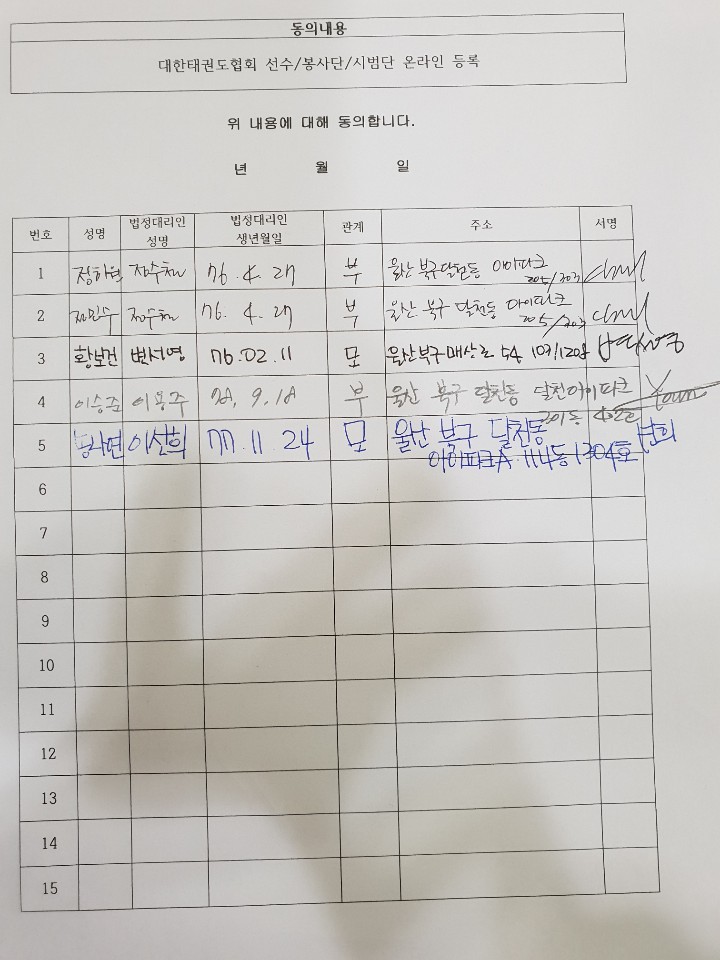 동의내용
대한태권도협회 선수/봉사단/시범단 온라인 등록
위 내용에 대해 동의합니다.
년 월 일
번호 성명 법정대리인 성명 법정대리인 생년월일 관계 주소 서명
1 정하혁 정수천 76. 4. 27 부 울산 북구 달천동 아이파크
205/203
2 정민수 정수천 76. 4. 27 부 울산 북구 달천동 아이파크
205/203
3 황보건 변서영 76.02.11 모 울산 북구 매산로 54
4 이승준 이봉주 78. 9. 18 부 울산 북구 달천동 달천아이파크
5 이선희 77.11.24 모 울산 북구 달천동
아이파크A 114동 1304호
6
7
8
9
10
11
12
13
14
15